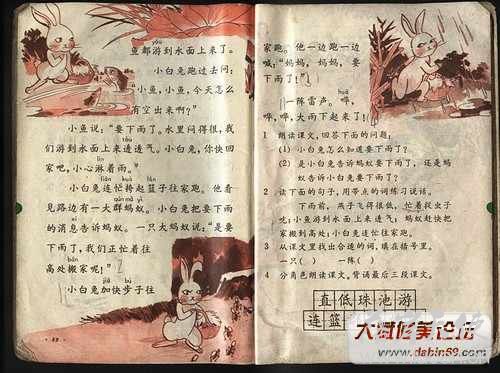 鱼都游到水面上来了。
小白兔跑过去问：
“小鱼，小鱼，今天怎么
有空出来啊？”
小鱼说：“要下雨了。水里闷得很，我
们游到水面上来透透气。小白兔，你快回
家吧，小心淋着雨。”
小白兔连忙挎起篮子往家跑。他看
见路边有一大群蚂蚁。小白兔把要下雨
的消息告诉蚂蚁。一只大蚂蚁说：“是要
下雨了，我们正忙着往
高处搬家呢！”
小白兔加快步子往
家跑。他一边跑一边
喊：“妈妈，妈妈，要
下雨了！”
一阵雷声。哗，
哗，哗，大雨下起来了！
1 朗读课文，回答下面的问题，
(1) 小白兔怎么知道要下雨了？
(2) 是小白兔告诉蚂蚁要下雨了，还是蚂
蚁告诉小白兔要下雨了？
2 读下面的句子，用带点的词练习说话。
下雨前，燕子飞得很低，忙着捉虫子
吃；小鱼游到水面上来透气；蚂蚁赶快把
家搬到高处；小白兔连忙往家跑。
3 从课文里找出合适的词，填在括号里。
一只（ ） 一阵（ ）
4 分角色朗读课文。背诵最后三段课文。
直低珠池游
连篮
大滨修美论坛
www.dabin69.com